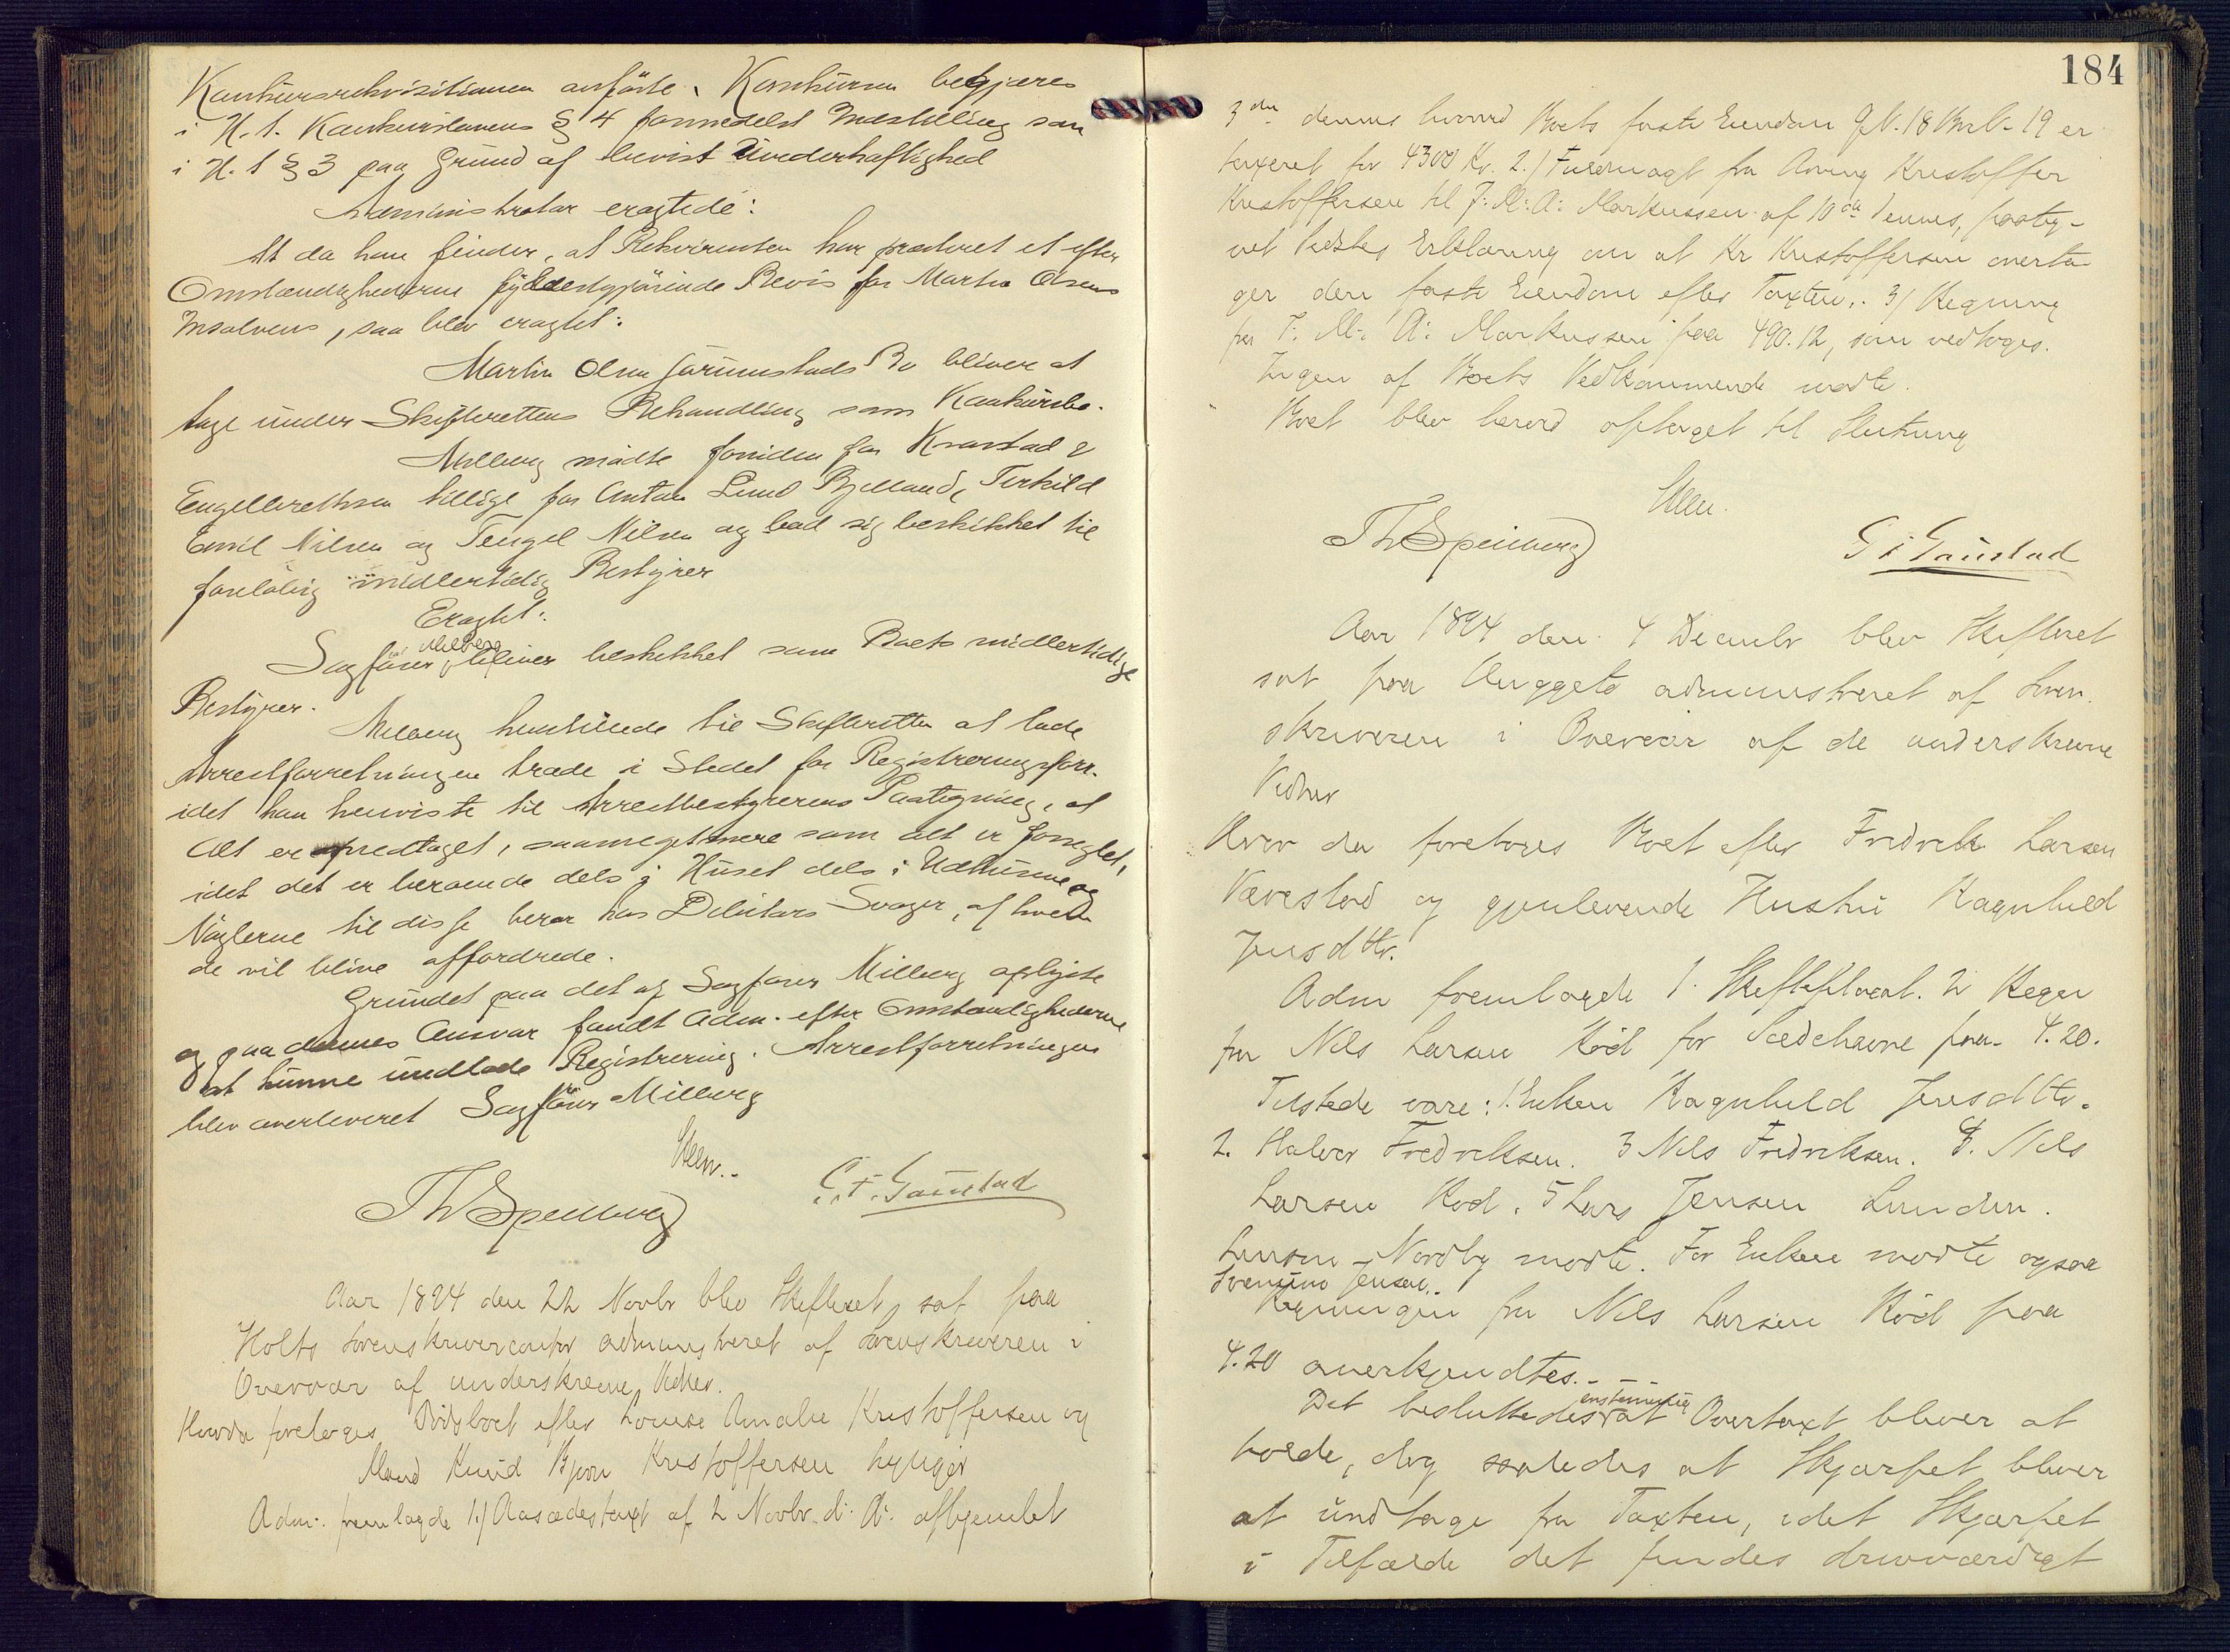 Konkursrekvisitionen anførte. Konkursen begjæres
i H. t. Konkurslovens § 4 formedelst Indstilling som
i H. t § 3 paa Grund af bevist Uvederhæftighed
Administrator eragtede:
At da han finder, at Rekvirenten har præsteret et efter
Omstændighederne fyldestgjørende Bevis for Martin Olsens
Insolvens, saa blev eragtet:
Martin Olsen Jorunnstads Bo bliver at
tage under Skifterettens Behandling som Konkursbo.
Milberg mødte foruden for Knarstad &
Engelbrethsen tillige for Anton Lund Bjelland, Terkild
Emil Nilsen og Tengel Nilsen og bad sig beskikket til
foreløbig midlertidig Bestyrer
Eragtet:
Sagfører Milberg bliver beskikket som Boets midlertidige
Bestyrer.
Milberg henstillede til Skifteretten at lade
Arrestforretningen træde i Stedet for Registreringsforr.
idet han henviste til Arrestbestyrerens Paategning, at
Alt er medtaget, saameget mere som alt er forseglet,
idet det er beroende dels i Huset dels i Udhusene og
Nøglerne til disse beror hos Debitors Svoger, af hvem
de vil blive affordrede.
Grundet paa det af Sagfører Milberg oplyste
og paa dennes Ansvar fandt Adm. efter Omstændighederne
at kunne undlade Registrering. Arrestforretningen
blev overleveret Sagfører Milberg
Steen.
Th Spenberg
G. T. Gaustad
Aar 1894 den 22 Novbr blev Skifteret sat paa
Holts Sorenskrivercontor administreret af Sorenskriveren i
Overvær af underskrevne Vidner.
Hvorda foretoges Dødsboet efter Lovise Amalie Kristoffersen og
Mand Knud Bjørn Kristoffersen
Adm. fremlagde 1.) Aasædestaxt af 2 Novbr d. A. afhjemlet
184
3die dennes hvorved Boets faste Eiendom G.N. 18 Br.N. 19 er
taxeret for 4300 Kr. 2.) Fuldmagt fra Arving Kristoffer
Kristoffersen til J. M. A. Markussen af 10de dennes, paateg-
net Sidstes Erklæring om at Kr Kristoffersen overta-
ger den faste Eiendom efter Taxten. 3) Regning
fra J. M. A. Markussen paa 490.12, som vedtoges.
Ingen af Boets Vedkommende mødte.
Boet blev herved optaget til Slutning
Steen.
Th Spenberg
G T Gaustad
Aar 1894 den 4 Decembr blev Skifteret
sat paa administreret af Soren-
skriveren i Overvær af de underskrevne
Vidner
Hvor da foretoges Boet efter Fredrik Larsen
Vævestad og gjenlevende Hustru Ragnhild
Jensdttr.
Adm fremlagde 1. Skifteplacat. 2 Regn
fra Nils Larsen Köd for Sædehavre paa 4.20.
Tilstede vare: 1. Enken Ragnhild Jensdttr.
2. Halvor Fredriksen. 3 Nils Fredriksen. 4. Nils
Larsen Kod. 5 Lars Jensen Lunden.
Nordby mødte. For Enken mødte ogsaa
Jensen.
Regningen fra Nils Larsen Köd paa
4.20 anerkjendtes.
Det besluttedes enstemmig at Overtaxt bliver at
holde, dog saaledes at Skjærpet bliver
at undtage fra Taxten, idet Skjærpet
i Tilfælde det findes drivværdigt